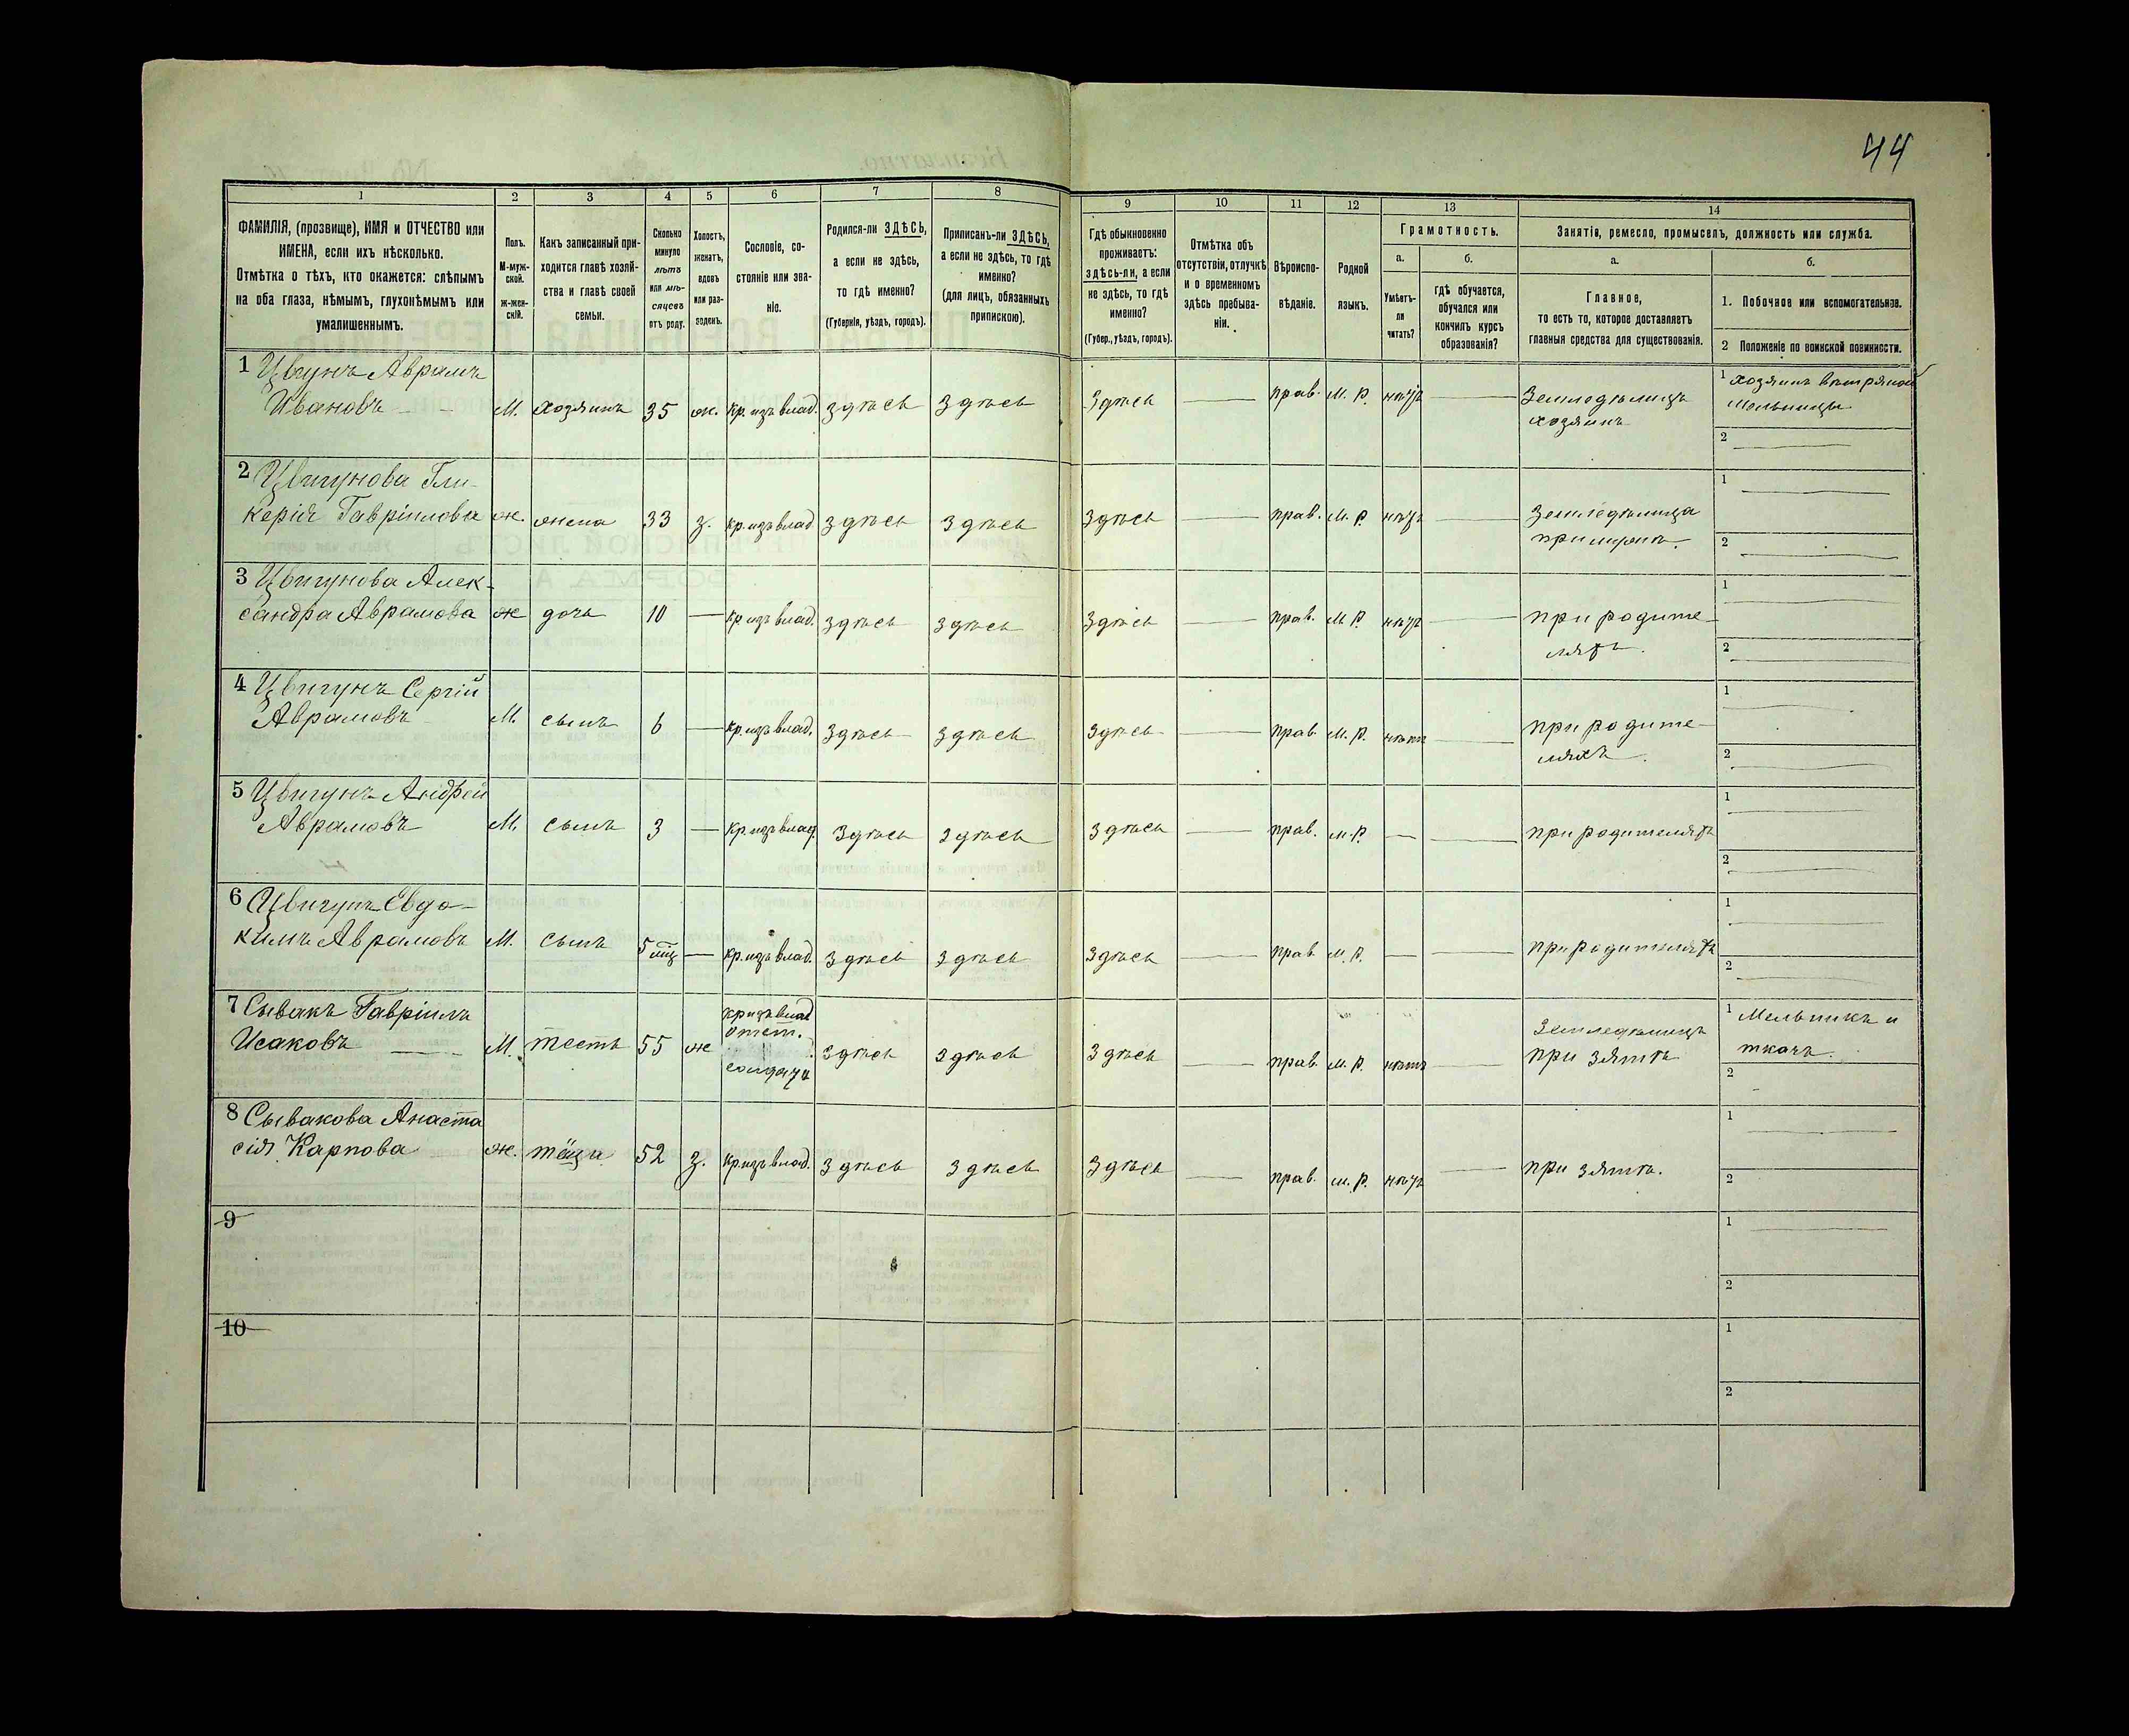 44
1 2 3 4 5 6 7 8 9 10 11 12 13 14
ФАМИЛІЯ, (прозвище), ИМЯ и ОТЧЕСТВО или
ИМЕНА, если ихъ нѣсколько.
Отмѣтка о тѣхъ, кто окажется: слѣпымъ
на оба глаза, нѣмымъ, глухонѣмымъ или
умалишеннымъ.
Полъ.
М-муж-
ской.
ж-жен-
скій.
Какъ записанный при-
ходится главѣ хозяй-
ства и главѣ своей
семьи.
Сколько
минуло
лѣтъ
или мѣ-
сяцевъ
отъ роду.
Холостъ,
женатъ,
вдовъ
или раз-
веденъ.
Сословіе, со-
стояніе или зва-
ніе.
Родился-ли ЗДѢСЬ,
а если не здѣсь,
то гдѣ именно?
(Губернія, уѣздъ, городъ).
Приписанъ-ли ЗДѢСЬ,
а если не здѣсь, то гдѣ
именно?
(для лицъ, обязанныхъ
припискою).
Гдѣ обыкновенно
проживаетъ:
здѣсь-ли, а если
не здѣсь, то гдѣ
именно?
(Губер., уѣздъ, городъ).
Отмѣтка объ
отсутствіи, отлучкѣ
и о временномъ
здѣсь пребыва-
ніи.
Вѣроиспо-
вѣданіе.
Родной
языкъ.
Грамотность.
а.
Умѣетъ-
ли
читать?
б.
гдѣ обучается,
обучался или
кончилъ курсъ
образованія?
Занятія, ремесло, промыселъ, должность или служба.
а.
Главное,
то есть то, которое доставляетъ
главныя средства для существованія.
б.
1. Побочное или вспомогательное.
2 Положеніе по воинской повинности.
1 Цвигунъ Аврамъ
Ивановъ М. хозяинъ 35 ж. кр. изъ влад. здѣсь здѣсь здѣсь прав. М. Р. нѣтъ
Земледѣлецъ
хозяинъ
1 Хозяинъ вѣтряной
мельницы
2
2 Цвигунова Гли-
керія Гавріилова ж. жена 33 з. кр. изъ влад здѣсь здѣсь здѣсь прав. М. Р. нѣтъ
земледѣлица
при мужѣ.
1
2
3 Цвигунова Алек-
сандра Аврамова ж дочь 10 кр изъ влад. здѣсь здѣсь здѣсь прав. М Р. нѣтъ
при родите-
ляхъ.
1
2
4 Цвигунъ Сергій
Аврамовъ М. сынъ 6 кр. изъ влад. здѣсь здѣсь здѣсь прав. М. Р. нѣтъ
при родите-
ляхъ.
1
2
5 Цвигунъ Андрей
Аврамовъ М. сынъ 3 кр. изъ влад. здѣсь здѣсь здѣсь прав. м. Р. при родителяхъ
1
2
6 Цвигунъ Евдо-
кимъ Аврамовъ М. сынъ 5 мц кр. изъ влад. здѣсь здѣсь здѣсь прав. М. Р. при родителяхъ
1
2
7 Сывакъ Гавріилъ
Исаковъ М. тесть 55 ж
кр изъ влад
отст.
солдатъ
здѣсь здѣсь здѣсь прав. М. Р. нѣтъ
Земледѣлецъ
при зятѣ
1 Мельникъ и
ткачъ.
2
8 Сывакова Анаста
сія Карпова ж. тёща 52 з. кр. изъ влад. здѣсь здѣсь здѣсь прав. м. Р. нѣтъ при зятѣ.
1
2
9
1
2
10
1
2